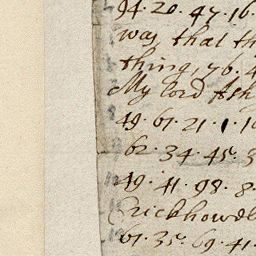 94. 20. 47. 16.
was that th
thing, 76. 4
My lord Ash
49. 61. 21. 1. 1
62. 34. 45. 3
49. 41. 98. 8.
Crickhowel
61. 35. 69. 41.